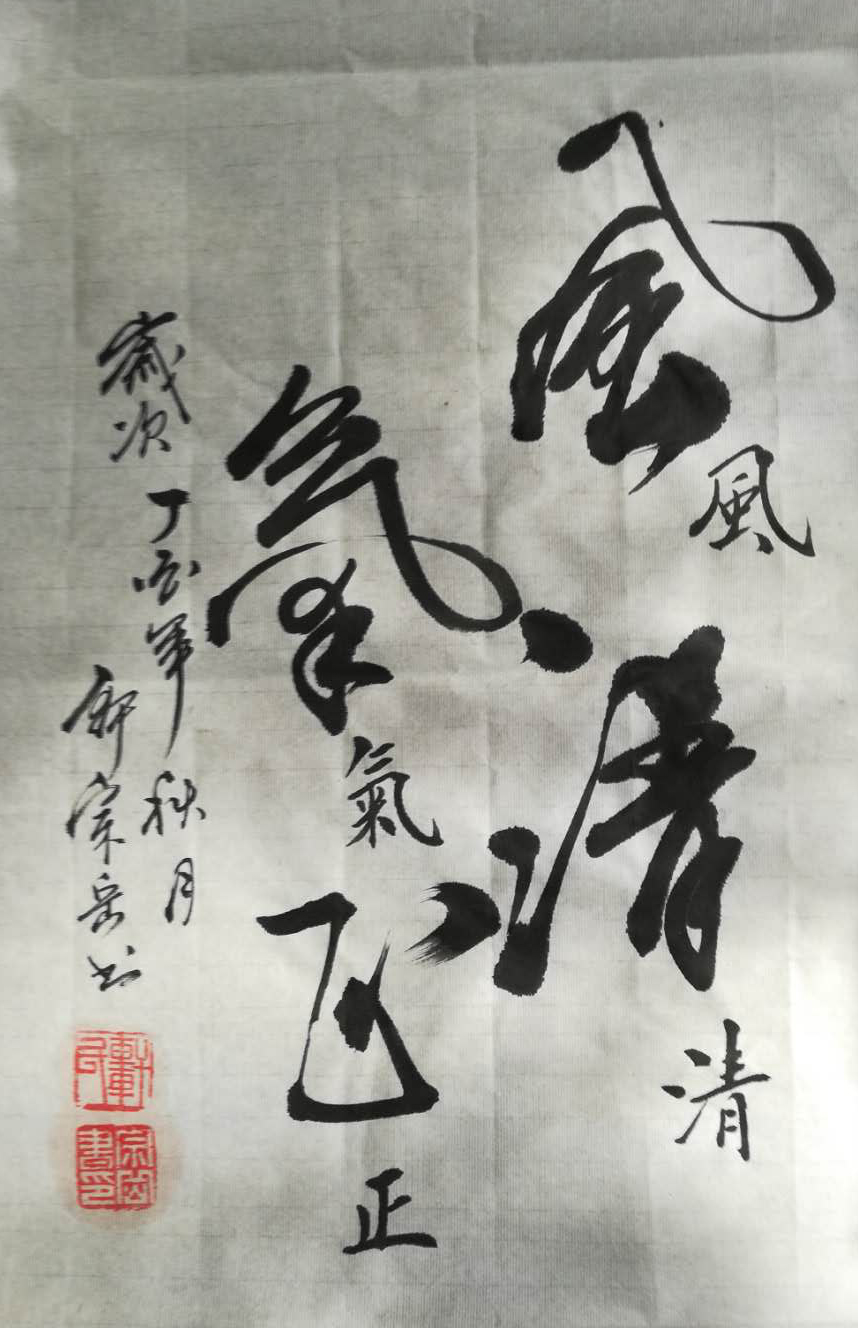 風清
風
清
氣正
氣
正
歲次丁酉年秋月
宗岳书